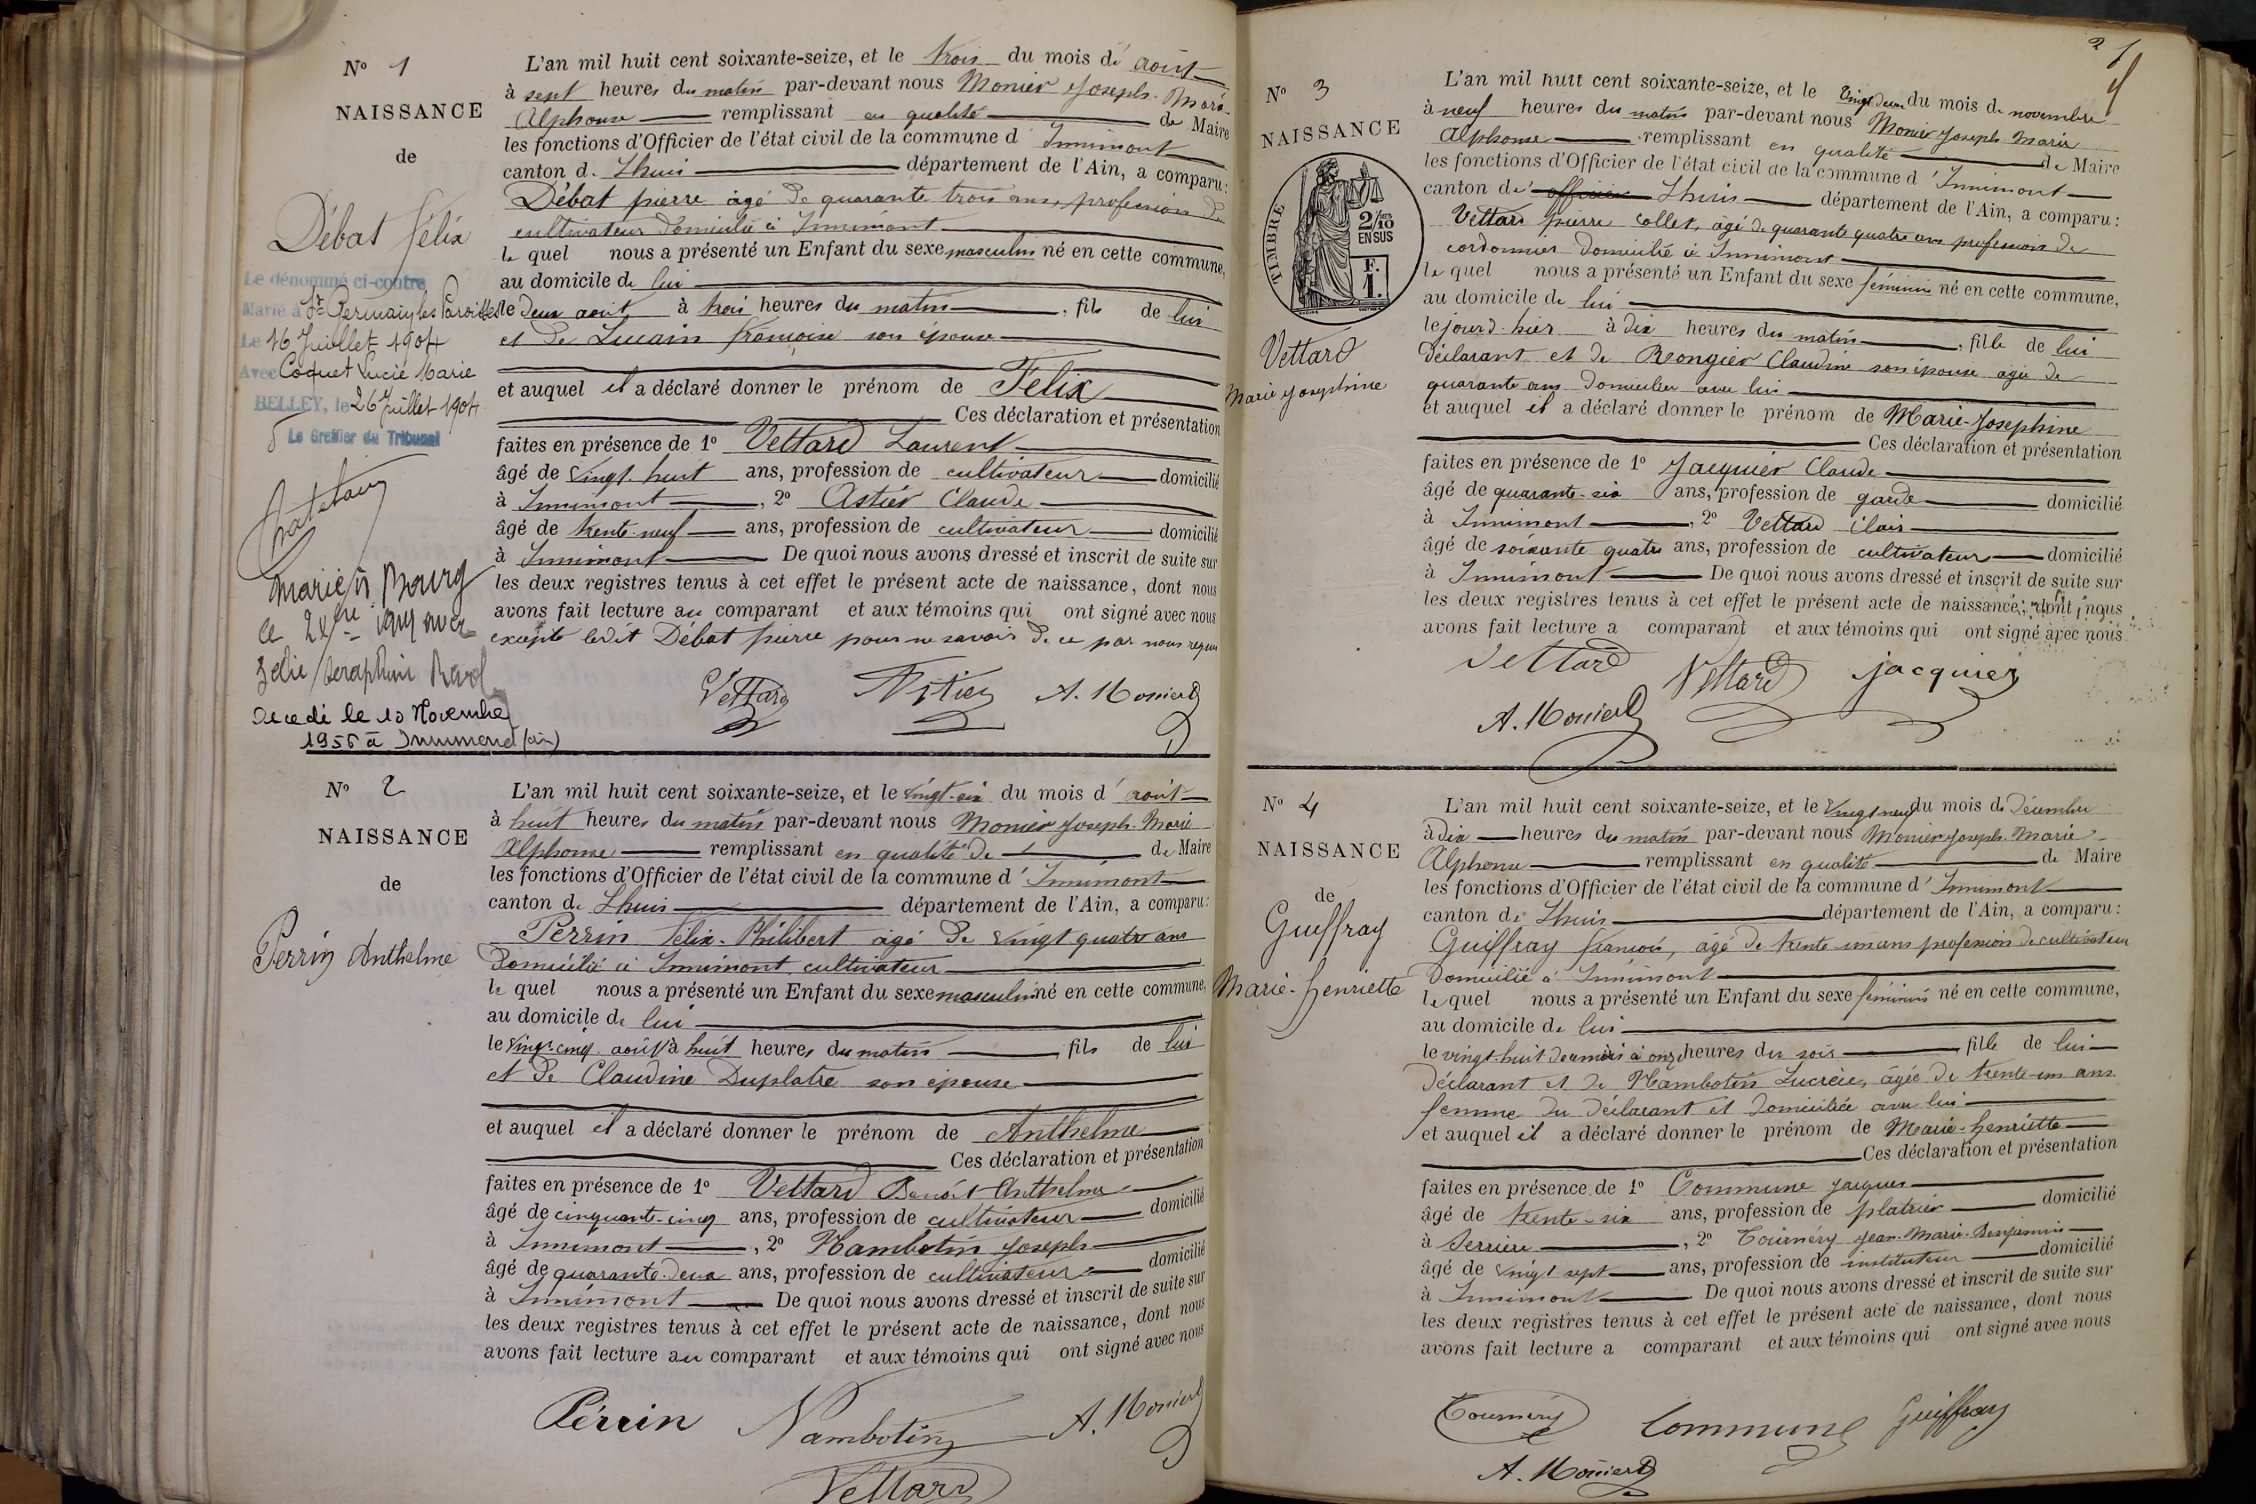 N° 1
NAISSANCE
de
Débat Félix
Le dénommé ci-contre
Marié à St Germain les Paroisses
Le 16 Juillet 1904
Avec Coquet Lucie Marie
BELLEY, le 26 Juillet 1904
Le Greffier du Tribunal
Marié à Bourg
le
Zélie Séraphine
Décédé le 10 Novembre
1956 à Innimond (ain)
L'an mil huit cent soixante-seize, et le trois du mois d'août
à sept heures du matin par-devant nous Monier Joseph-Marie
Alphonse remplissant en qualité de Maire
les fonctions d'Officier de l'état civil de la commune d'Innimont
canton de Lhuis département de l'Ain, a comparu:
Débat pierre âgé de quarante trois ans, profession de
cultivateur domicilié à Innimont
le quel nous a présenté un Enfant du sexe masculin né en cette commune,
au domicile de lui
le deux août à trois heures du matin, fils de lui
et de Lucain françoise son épouse
et auquel il a déclaré donner le prénom de Félix
Ces déclaration et présentation
faites en présence de 1° Vettard Laurent
âgé de vingt-huit ans, profession de cultivateur domicilié
à Innimont, 2° Astier Claude
âgé de trente-neuf ans, profession de cultivateur domicilié
à Innimont De quoi nous avons dressé et inscrit de suite sur
les deux registres tenus à cet effet le présent acte de naissance, dont nous
avons fait lecture au comparant et aux témoins qui ont signé avec nous
excepté ledit Débat pierre pour ne savoir de ce par nous requis
Vettard Astier A. Monier
N° 2
NAISSANCE
de
Perrin Anthelme
L'an mil huit cent soixante-seize, et le vingt-six du mois d'août
à huit heures du matin par-devant nous Monier Joseph-Marie
Alphonse remplissant en qualité de de Maire
les fonctions d'Officier de l'état civil de la commune d'Innimont
canton de Lhuis département de l'Ain, a comparu:
Perrin Félix-Philibert âgé de vingt quatre ans
domicilié à Innimont, cultivateur
le quel nous a présenté un Enfant du sexe masculin né en cette commune,
au domicile de lui
le vingt-cinq août à huit heures du matin, fils de lui
et de Claudine Duplatre son épouse
et auquel il a déclaré donner le prénom de Anthelme
Ces déclaration et présentation
faites en présence de 1° Vettard Benoît Anthelme
âgé de cinquante-cinq ans, profession de cultivateur domicilié
à Innimont, 2° Nambotin Joseph
âgé de quarante-deux ans, profession de cultivateur domicilié
à Innimont De quoi nous avons dressé et inscrit de suite sur
les deux registres tenus à cet effet le présent acte de naissance, dont nous
avons fait lecture au comparant et aux témoins qui ont signé avec nous
Perrin Nambotin A. Monier
Vettard
N° 3
NAISSANCE
TIMBRE
2/10
EN SUS
F.
1.
Vettard
Marie Josephine
L'an mil huit cent soixante-seize, et le vingt deux du mois de novembre
à neuf heures du matin par-devant nous Monier Joseph-Marie
Alphonse remplissant en qualité de Maire
les fonctions d'Officier de l'état civil de la commune d'Innimont
canton de officier Lhuis département de l'Ain, a comparu:
Vettard pierre Collet, âgé de quarante quatre ans profession de
cordonnier domicilié à Innimont
le quel nous a présenté un Enfant du sexe féminin né en cette commune,
au domicile de lui
le jour d'hier à dix heures du matin, fille de lui
déclarant et de Rongier Claudine son épouse âgée de
quarante ans domiciliée avec lui
et auquel il a déclaré donner le prénom de Marie-Josephine
Ces déclaration et présentation
faites en présence de 1° Jacquier Claude
âgé de quarante-six ans, profession de garde domicilié
à Innimont, 2° Vettard Clair
âgé de soixante quatre ans, profession de cultivateur domicilié
à Innimont De quoi nous avons dressé et inscrit de suite sur
les deux registres tenus à cet effet le présent acte de naissance, dont nous
avons fait lecture a comparant et aux témoins qui ont signé avec nous
Vettard Vettard jacquier
A. Monier
N° 4
NAISSANCE
de
Guiffray
Marie-henriette
L'an mil huit cent soixante-seize, et le vingt neuf du mois de Décembre
à dix heures du matin par-devant nous Monier Joseph-Marie
Alphonse remplissant en qualité de Maire
les fonctions d'Officier de l'état civil de la commune d'Innimont
canton de Lhuis département de l'Ain, a comparu:
Guiffray françois, âgé de trente-un ans profession de cultivateur
domicilié à Innimont
le quel nous a présenté un Enfant du sexe féminin né en cette commune,
au domicile de lui
le vingt-huit à onze heures du soir, fille de lui
déclarant et de Nambotin Lucrèce, âgée de trente-un ans
femme du déclarant et domiciliée avec lui
et auquel il a déclaré donner le prénom de Marie-henriette
Ces déclaration et présentation
faites en présence de 1° Commune Jacques
âgé de trente-six ans, profession de platrier domicilié
à Serrière, 2° Tournéry Jean-Marie-Benjamin
âgé de vingt sept ans, profession de instituteur domicilié
à Innimont De quoi nous avons dressé et inscrit de suite sur
les deux registres tenus à cet effet le présent acte de naissance, dont nous
avons fait lecture a comparant et aux témoins qui ont signé avec nous
Tournéry Commune Guiffray
A. Monier